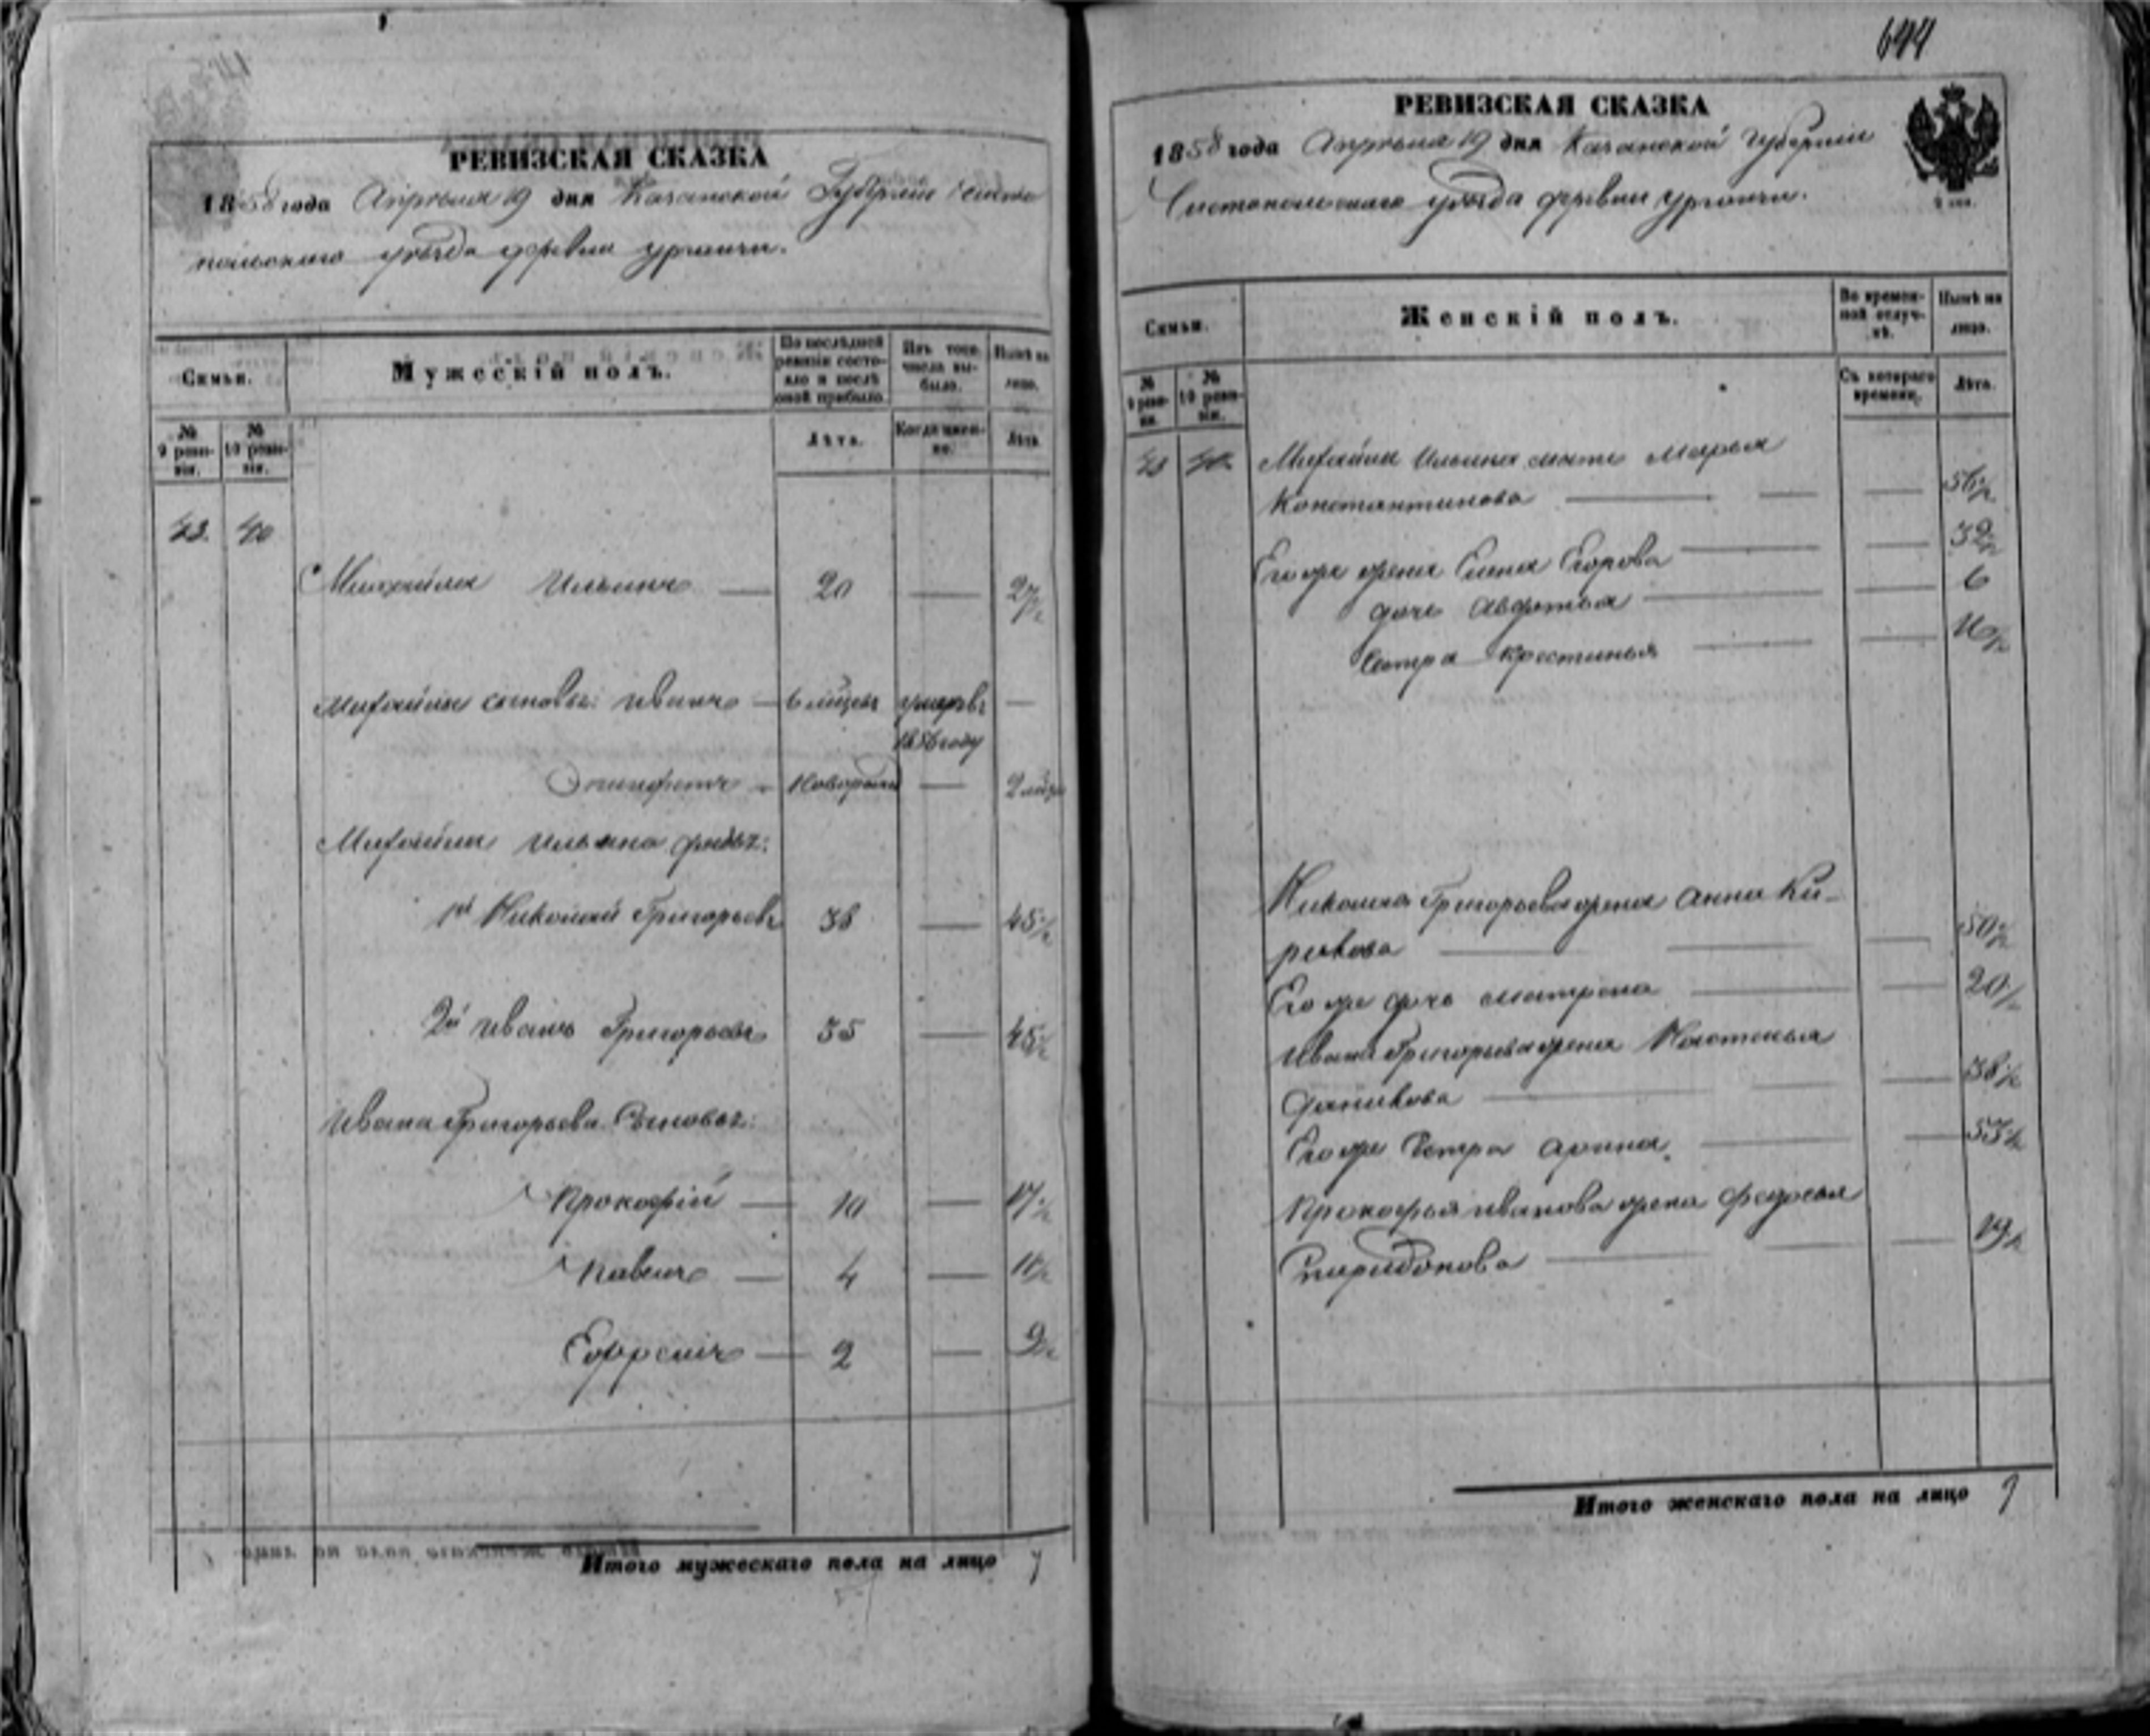 РЕВИЗСКАЯ СКАЗКА
1858 года Апреля 19 дня Казанской Губернии Чисто
польскаго уѣзда деревни
Семьи.
Мужескій полъ.
По послѣдней ревизіи состояло и послѣ оной прибыло.
Изъ того числа выбыло.
Нынѣ на лицо.
№ 9 ревизіи.
№ 10 ревизіи.
Лѣта.
Когда именно.
Лѣта.
43. 40
Михайла Ильинъ — 20 — 27 ½
Михайлы сыновья: Иванъ — 6 мѣсяц умеръ —
1856 году
новорожд — 2 мѣсяц
Михайлы Ильина дядья:
1й Николай Григорьевъ 38 — 45 ½
2й Иванъ Григорьевъ 35 — 45 ½
Ивана Григорьева Сыновья:
Прокофій — 10 — 17 ½
Павелъ — 4 — 11 ½
Ефремъ — 2 — 9 ½
Итого мужескаго пола на лицо 7
644
РЕВИЗСКАЯ СКАЗКА
1858 года Апреля 19 дня Казанской Губернии
Чистопольскаго уѣзда деревни
Семьи.
Женскій полъ.
Во временной отлучкѣ.
Нынѣ на лицо.
№ 9 ревизіи.
№ 10 ревизіи.
Съ котораго времени.
Лѣта.
43 40 Михайлы Ильина мать Марья
Константинова — — — 56 ½
Его же жена Елена Егорова — — 32 ½
дочь Авдотья — — 6
Сестра Крестинья — — 16 ½
Николая Григорьева жена Анна Ки-
рикова — — — 50 ½
Его же дочь Матрена — — 20 ½
Ивана Григорьева жена Настасья
Данилова — — — 38 ½
Его же Сестра Арина — — 53 ½
Прокофья Иванова жена Федосья
Спиридонова — — — 19 ½
Итого женскаго пола на лицо 9